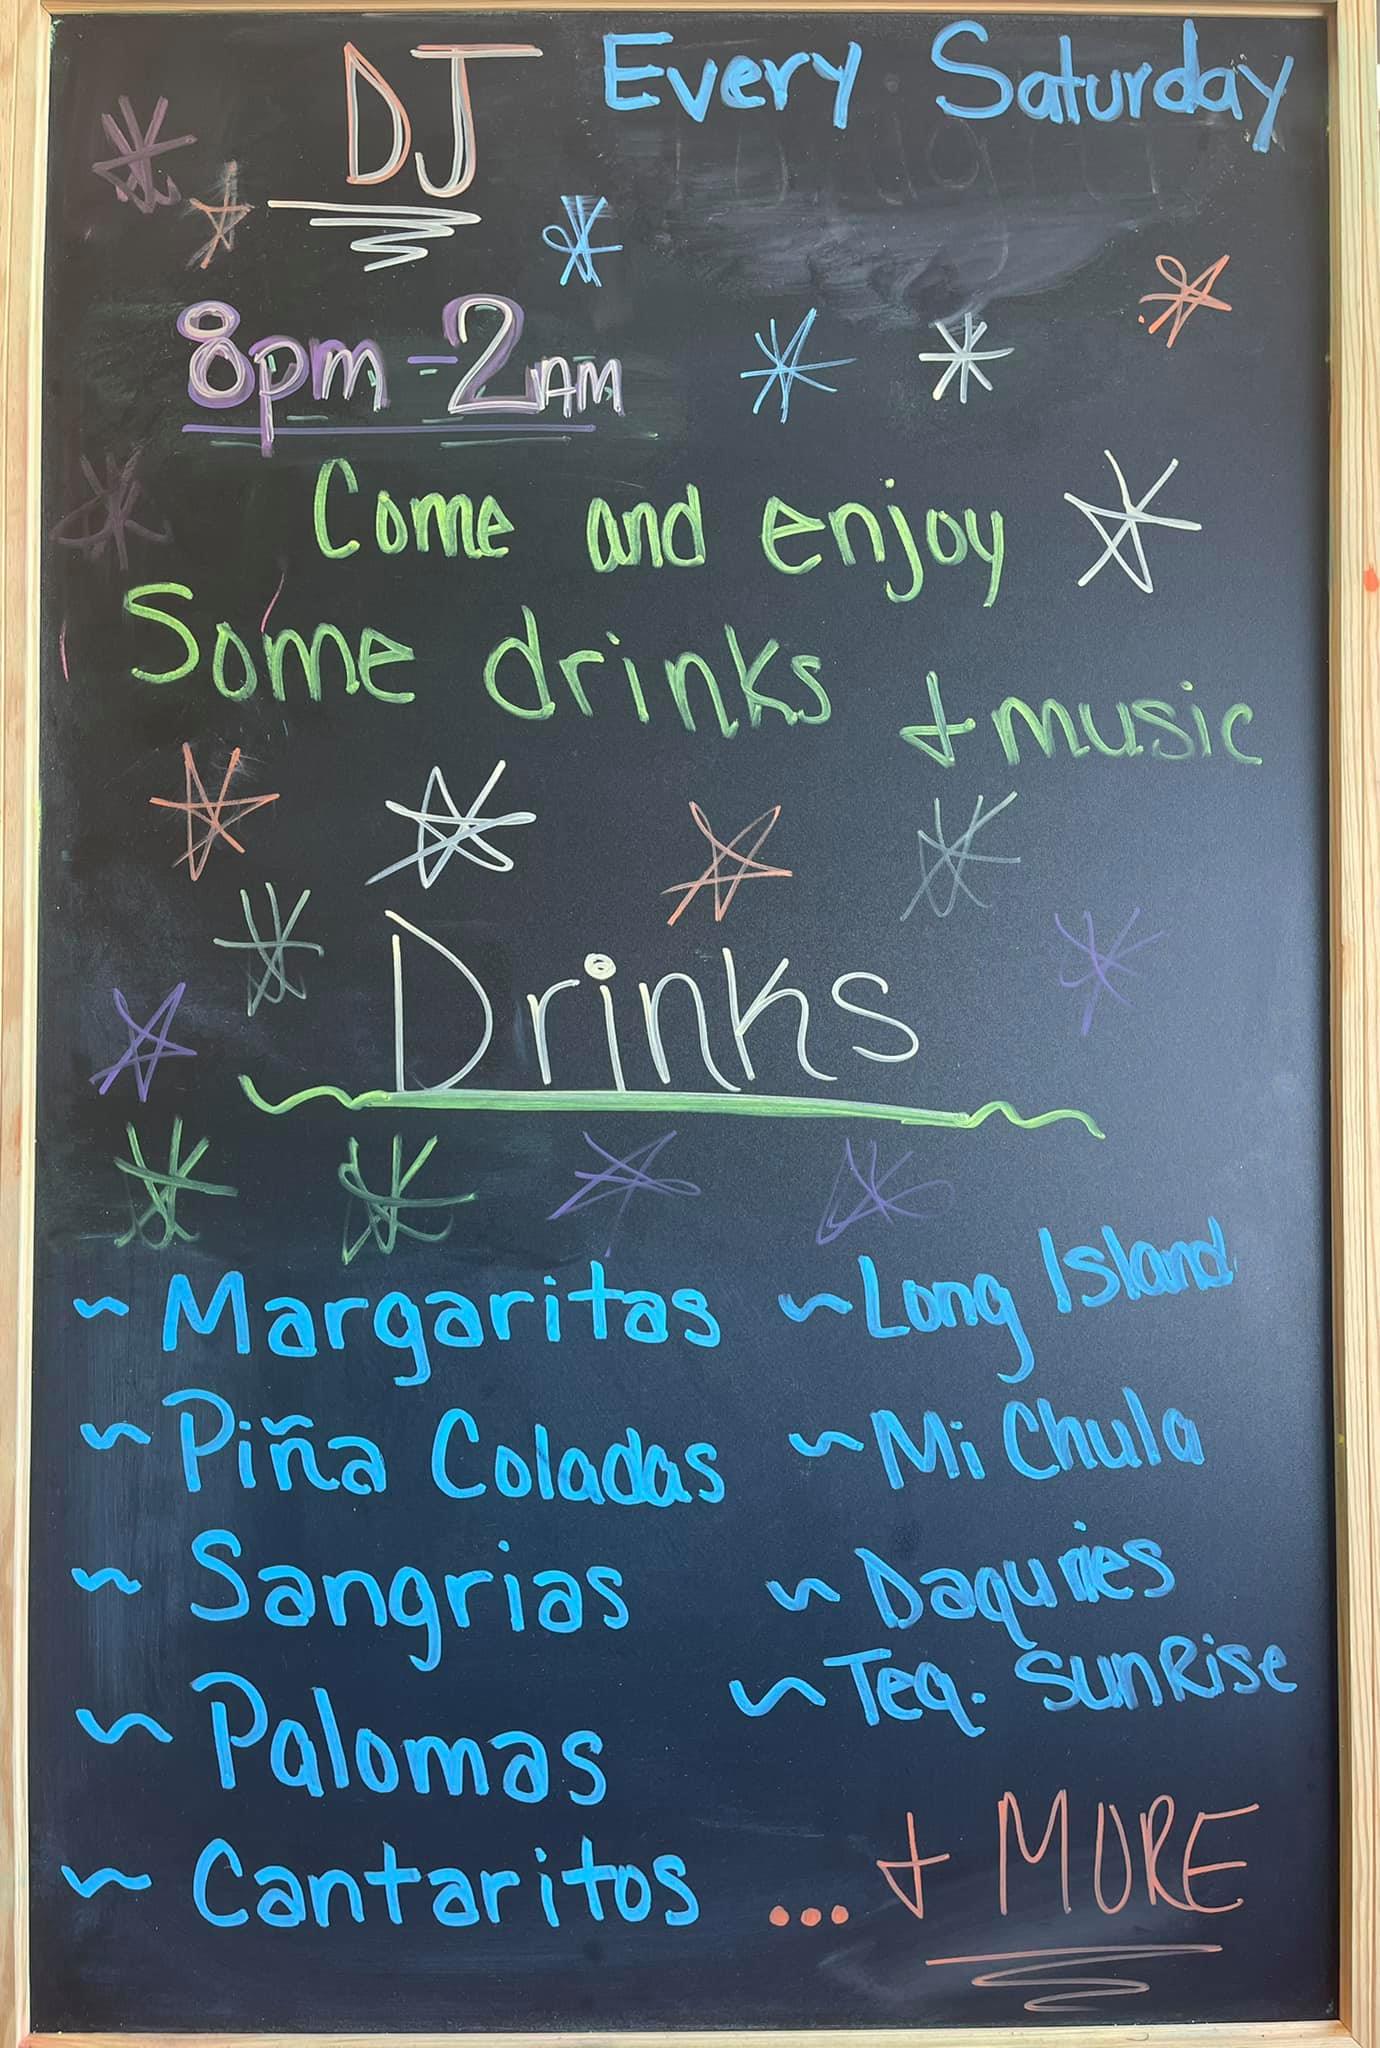 DJ Every Saturday
8pm - 2AM
Come and enjoy
Some drinks + music
Drinks
~ Margaritas
~ Piña Coladas
~ Sangrias
~ Palomas
~ Cantaritos
~ Long Island
~ Mi Chula
~ Daquries
~ Teq. SunRise
... + MORE